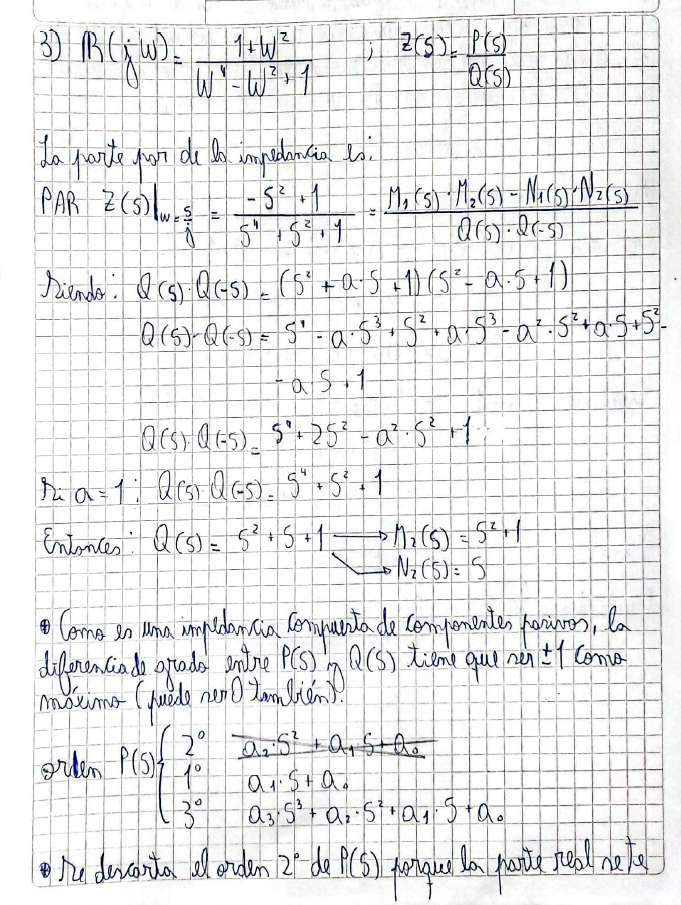 3) R(jω) = (1+ω²)/(ω⁴ - ω² + 1) ; Z(S) = P(S)/Q(S)
La parte par de la impedancia es:
PAR Z(S)|ω=S/j = (-S² + 1)/(S⁴ + S² + 1) = (M₁(S)·M₂(S) - N₁(S)·N₂(S))/(Q(S)·Q(-S))
Siendo: Q(S)·Q(-S) = (S² + a·S + 1)(S² - a·S + 1)
Q(S)·Q(-S) = S⁴ - a·S³ + S² + a·S³ - a²·S² + a·S + S² -
- a·S + 1
Q(S)·Q(-S) = S⁴ + 2S² - a²·S² + 1
Si a = 1: Q(S)·Q(-S) = S⁴ + S² + 1
Entonces: Q(S) = S² + S + 1 → M₂(S) = S² + 1
→ N₂(S) = S
• Como es una impedancia compuesta de componentes pasivos, la
diferencia de grado entre P(S) y Q(S) tiene que ser ±1 como
máximo (puede ser 0 también).
orden P(S) { 2° a₂·S² + a₁·S + a₀
1° a₁·S + a₀
3° a₃·S³ + a₂·S² + a₁·S + a₀
• Se descarta el orden 2° de P(S) porque la parte real se te